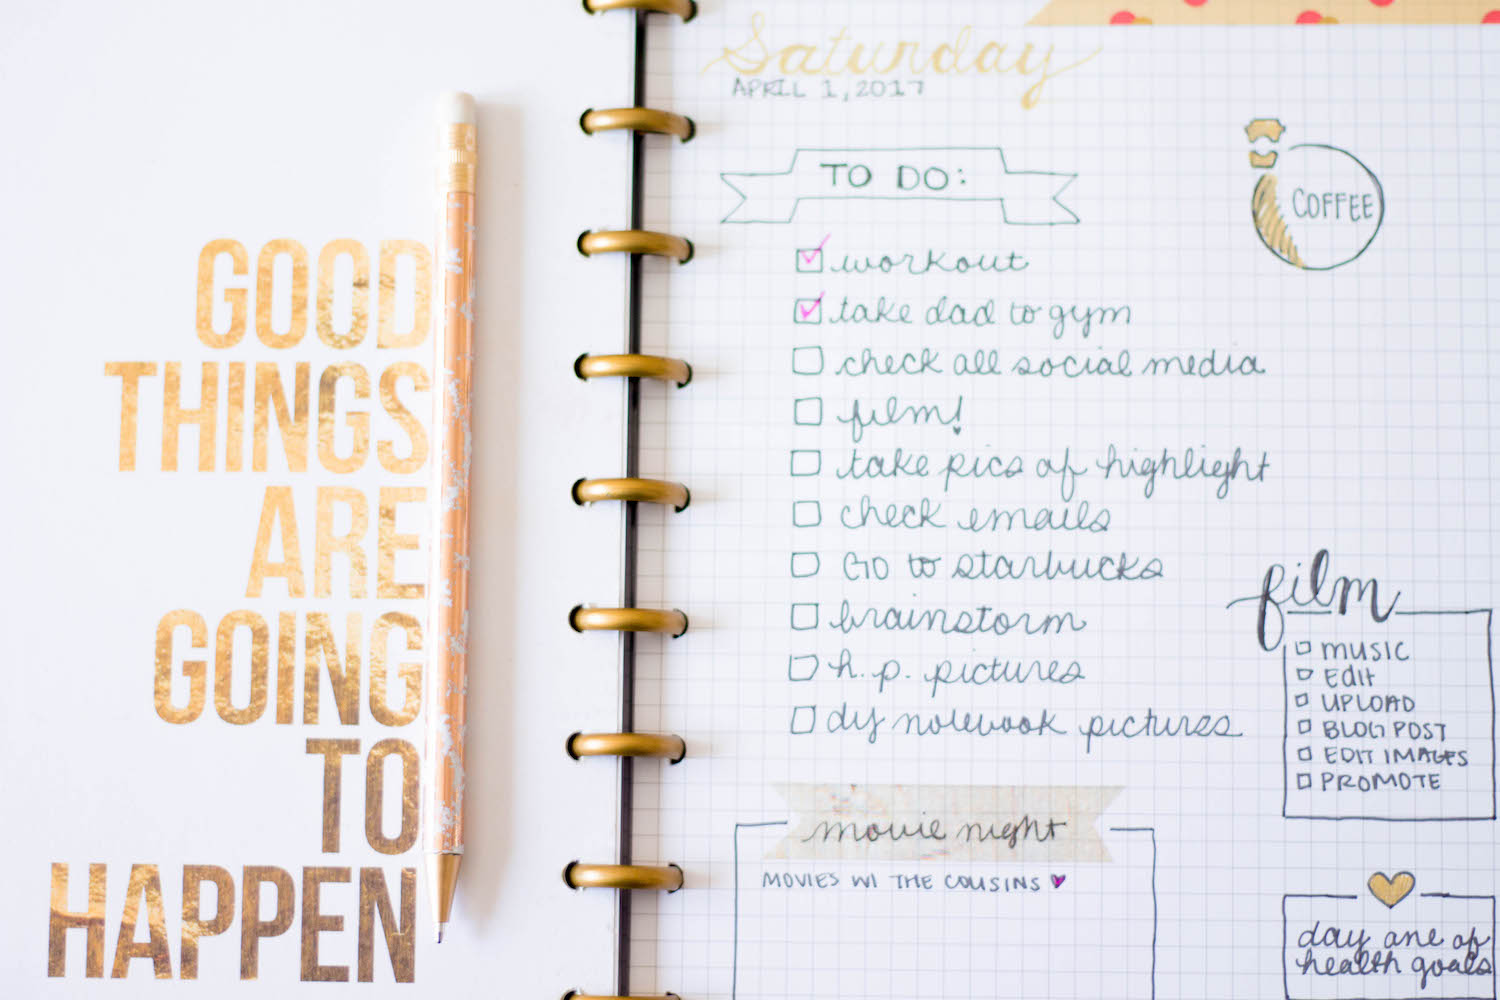 GOOD
THINGS
ARE
GOING
TO
HAPPEN
Saturday
APRIL 1, 2017
TO DO:
workout
take dad to gym
check all social media
film!
take pics of highlight
check emails
GO to starbucks
brainstorm
h.p. pictures
diy notebook pictures
COFFEE
film
MUSIC
EDIT
UPLOAD
BLOG POST
EDIT IMAGES
PROMOTE
movie night
MOVIES W/ THE COUSINS
day one of
health goals